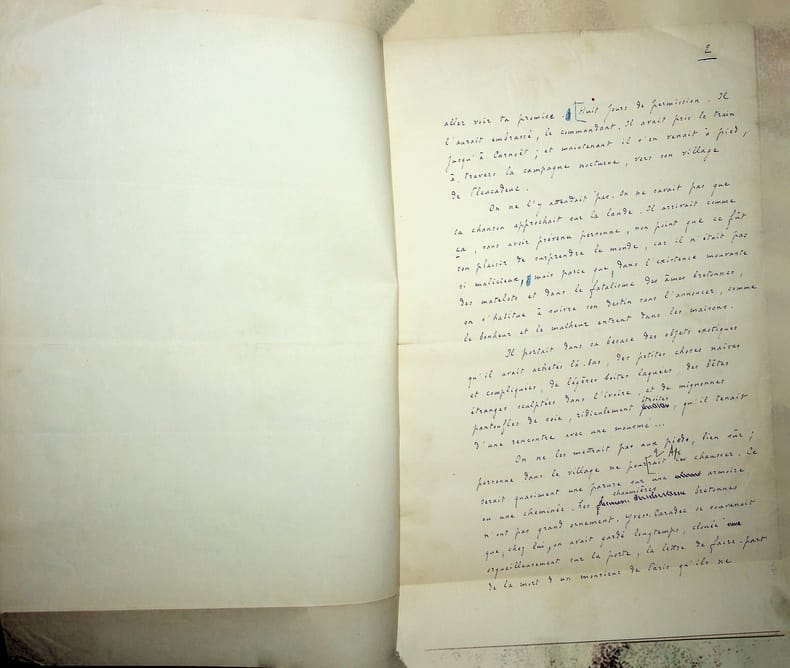 2
aller voir ta promise. Huit jours de permission. Il
l'aurait embrassé, le commandant. Il avait pris le train
jusqu'à Carnoët ; et maintenant il s'en venait à pied,
à travers la campagne nocturne, vers son village
de
On ne l'y attendait pas. On ne savait pas que
sa chanson approchait sur la lande. Il arrivait comme
ça, sans avoir prévenu personne, non point que ce fût
son plaisir de surprendre le monde, car il n'était pas
si malicieux, mais parce que, dans l'existence mouvante
des matelots et dans le fatalisme des âmes bretonnes,
on s'habitue à suivre son destin sans l'annoncer, comme
le bonheur et le malheur entrent dans les maisons.
Il portait dans sa besace des objets exotiques
qu'il avait achetés là-bas, des petites choses naïves
et compliquées, de légères boîtes laquées, des bêtes
étranges sculptées dans l'ivoire, et de mignonnes
étroites
pantoufles de soie, ridiculement, qu'il tenait
d'une rencontre avec une mousmé...
On ne les mettrait pas aux pieds, bien sûr ;
personne dans le village ne pourrait chausser. Ce
serait quasiment une parure sur une armoire
chaumières
ou une cheminée. Les bretonnes
n'ont pas grand ornement. Yves Caradec se souvenait
que, chez lui, on avait gardé longtemps, clouée
orgueilleusement sur la porte, la lettre de faire-part
de la mort d'un monsieur de Paris qu'ils ne